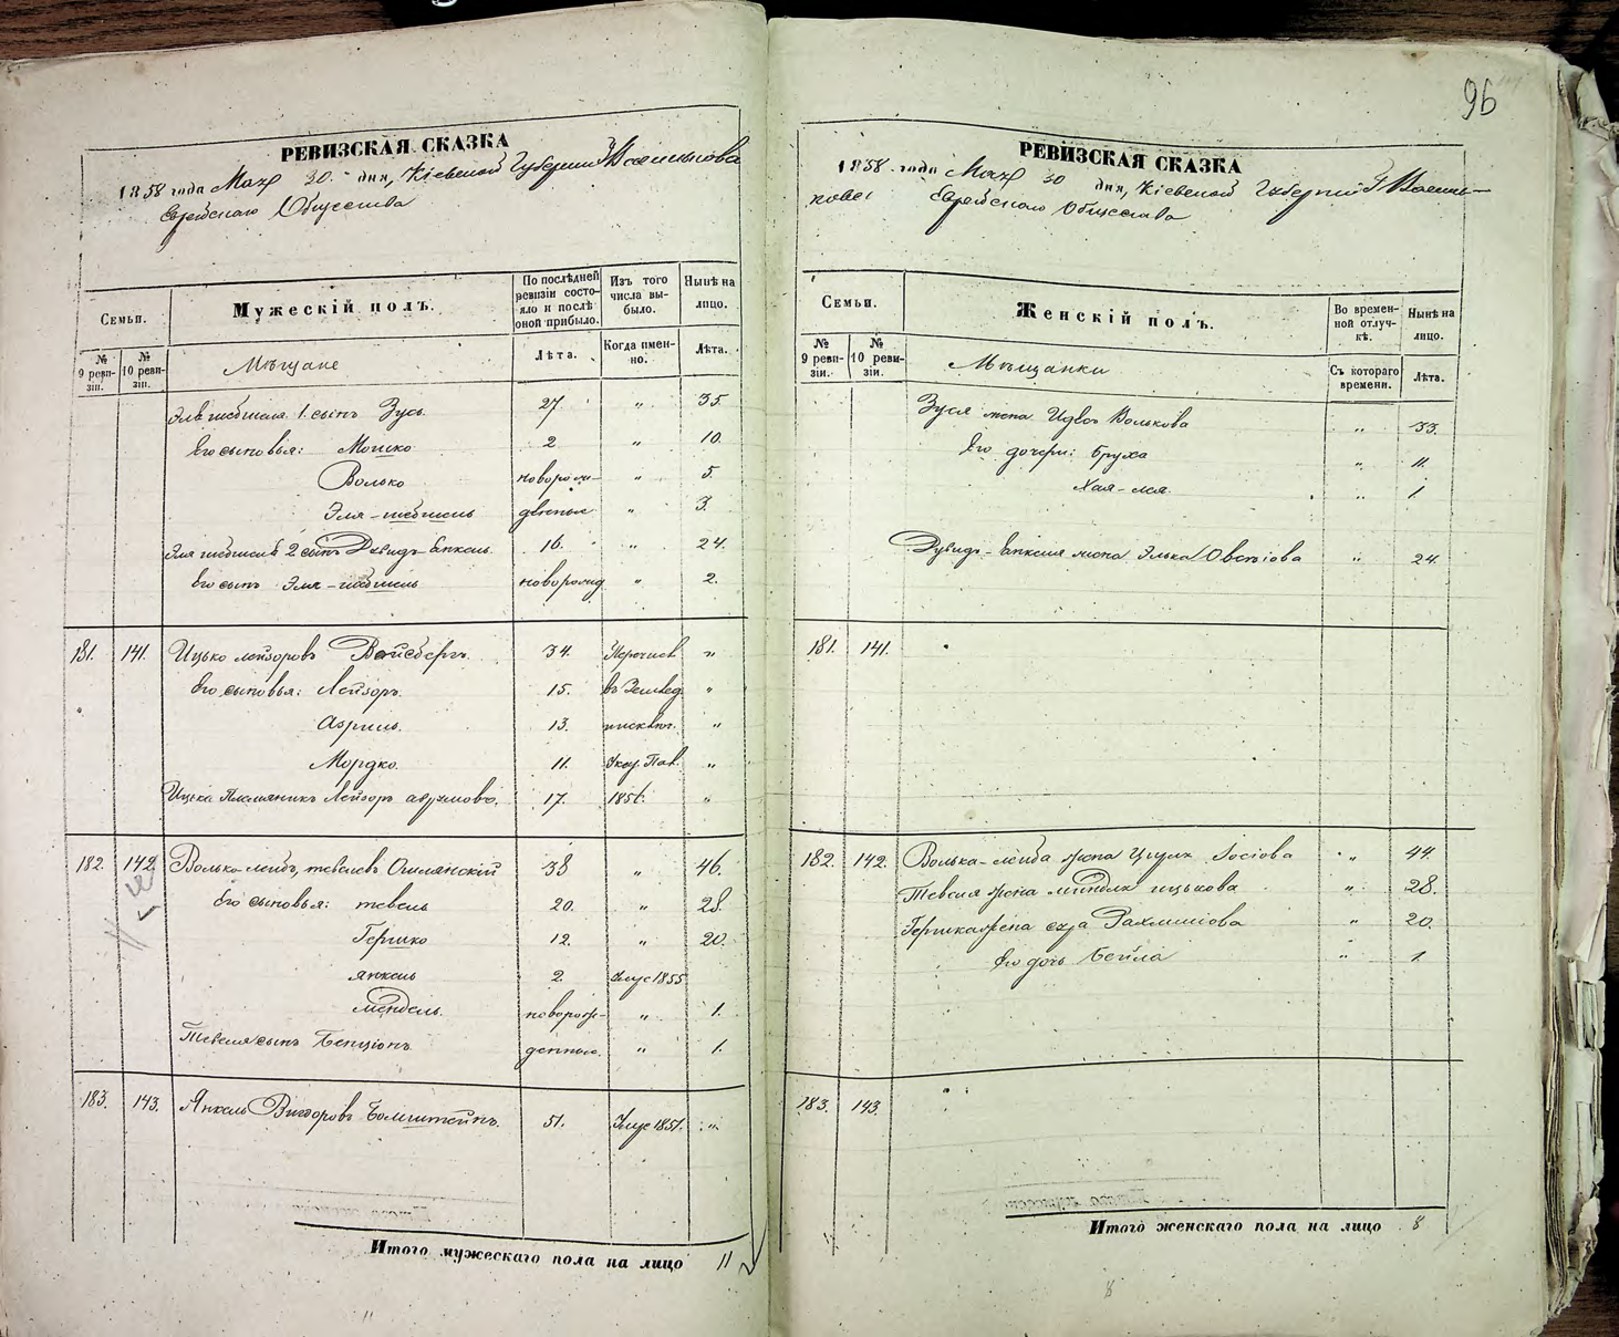 96
РЕВИЗСКАЯ СКАЗКА
1858 года Мая 30 дня, Кіевской Губерніи Г Василькова
Еврейскаго Общества
Семьи.
Мужескій полъ.
По послѣдней ревизіи состояло и послѣ оной прибыло.
Изъ того числа выбыло.
Нынѣ на лицо.
№ 9 ревизіи.
№ 10 ревизіи.
Мѣщане
Лѣта.
Когда именно.
Лѣта.
1. сынъ Зусь 27 " 35.
Его сыновья: Мошко 2 " 10.
Волько новорож- " 5.
Эля- денные " 3.
2 сынъ Дувидъ Янкель 16. " 24.
Его сынъ Эля- новорожд " 2.
181. 141. Ицько Лейзоровъ Вайсбергъ 34. Перечисл "
Его сыновья: Лейзоръ 15. въ Землед "
13. "
Мордко 11. Указ. Пал. "
Ицька Племянникъ Лейзоръ 17. 185 "
182. 142. Волько Лейбъ Тевелевъ 38 " 46.
Его сыновья: Тевель 20. " 28.
Гершко 12. " 20.
Янкель 2. Умре 1855
Мендель новорож- " 1.
Тевеля сынъ Бенціонъ денные. " 1.
183. 143. Янкель Вигдоровъ 51. Умре 1851. "
Итого мужескаго пола на лицо 11
РЕВИЗСКАЯ СКАЗКА
1858 года Мая 30 дня, Кіевской Губерніи Г Василь-
кова Еврейскаго Общества
Семьи.
Женскій полъ.
Во временной отлучкѣ.
Нынѣ на лицо.
№ 9 ревизіи.
№ 10 ревизіи.
Мѣщанки
Съ котораго времени.
Лѣта.
Зуся жена Волькова " 33.
Его дочери: Бруха " 11.
Хая-лея " 1
Дувидъ-Янкеля жена Элька " 24.
181. 141.
182. 142. Волька-лейба жена Іосіова " 44.
Тевеля жена Миндля Ицькова " 28.
Гершка жена Рахмиліова " 20.
Его дочь Бейла " 1
183. 143.
Итого женскаго пола на лицо 8
8
11